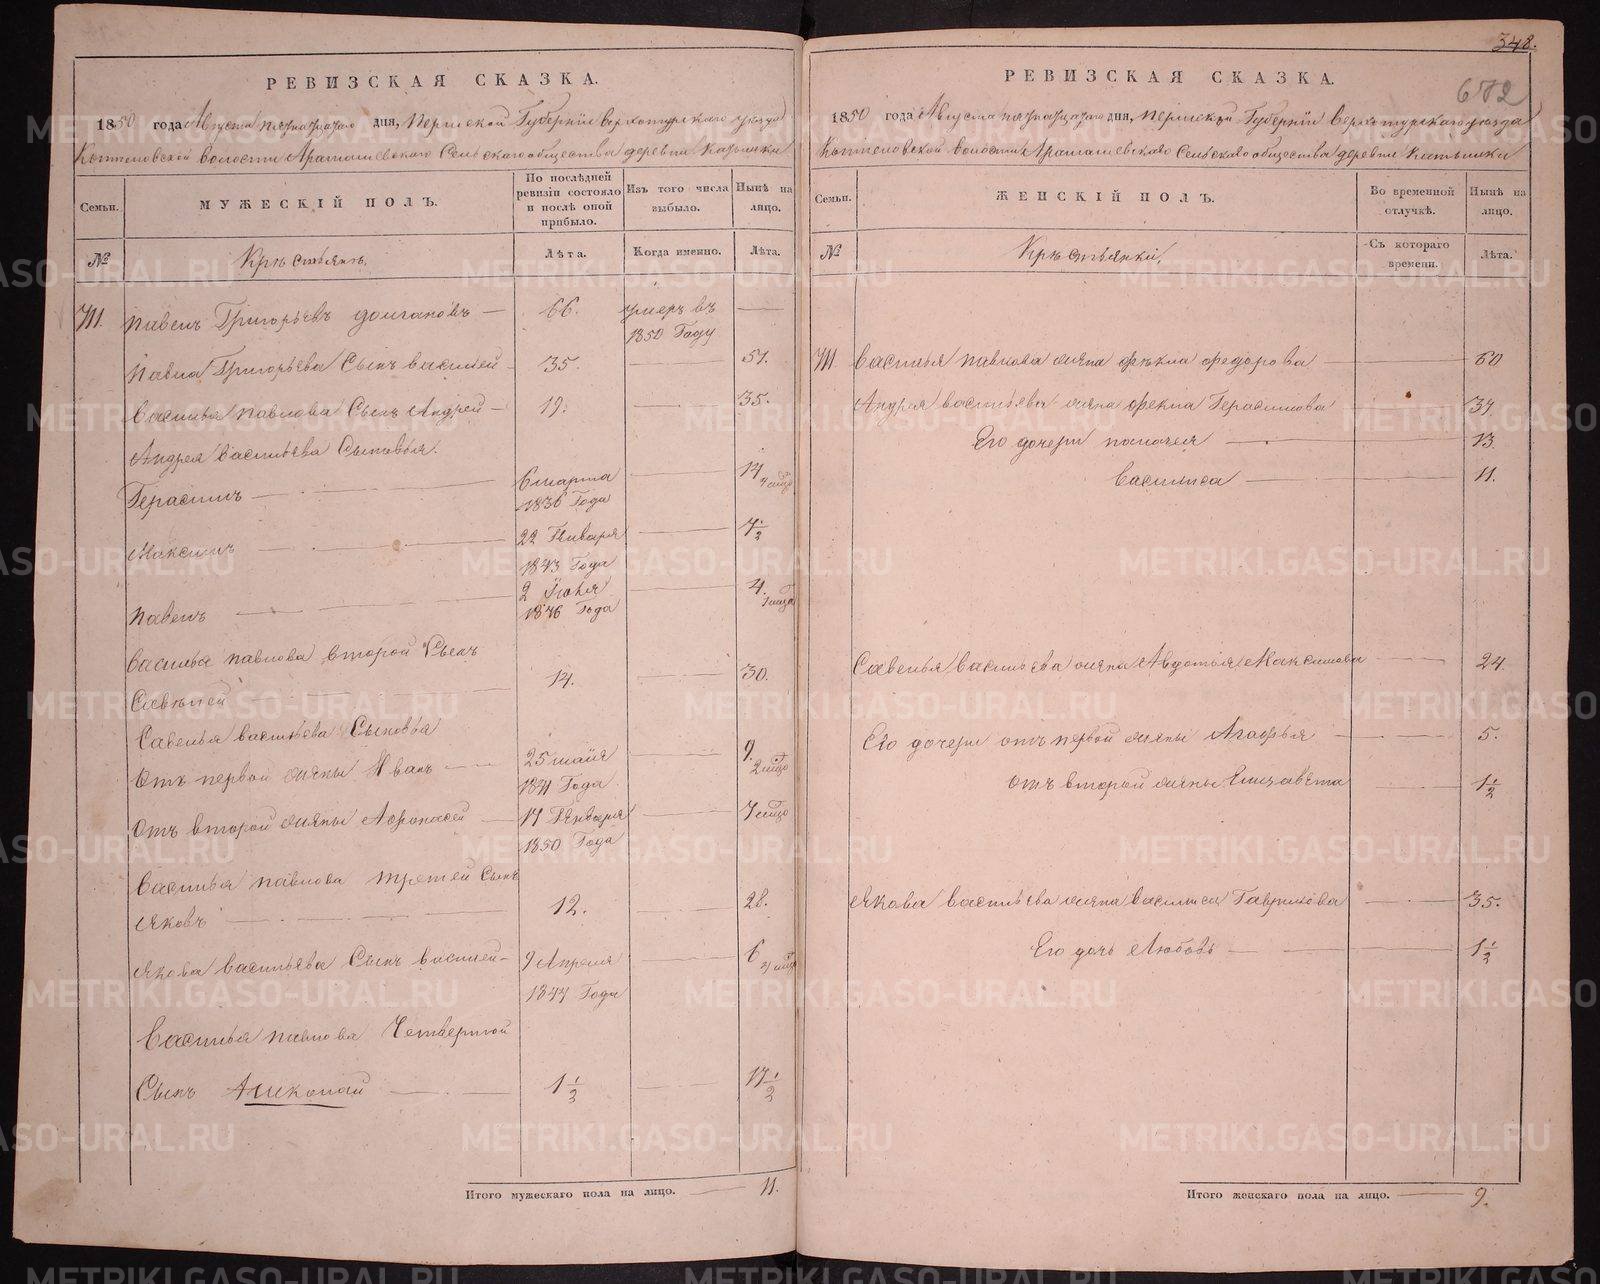 РЕВИЗСКАЯ СКАЗКА.
1850 года Августа пятнатцатого дня, Пермской Губернии верхотурскаго уезда
Коптеловской волости Арамашевскаго Сельскаго общества деревни
Семьи.
МУЖЕСКІЙ ПОЛЪ.
По послѣдней ревизіи состояло и послѣ оной прибыло.
Изъ того числа выбыло.
Нынѣ на лицо.
№
Крѣстьянъ,
Лѣта.
Когда именно.
Лѣта.
Павелъ Григорьевъ долгановъ — 66. умеръ въ —
1850 Году
Павла Григорьева Сынъ василей 35. — 51.
Василья павлова Сынъ Андрей — 19. — 35.
Андрея васильева Сыновья.
Герасимъ — 6 марта — 14
1836 Года
Максимъ — 22 Генваря — 7 1/2
1843 Года
Павелъ — 2 Іюня — 4.
1846 Года
василья павлова второй Сынъ
Савѣлей 14. 30.
Савелья васильева Сыновья
Отъ первой жены Иванъ — 25 майя — 9.
1841 Года
Отъ второй жены Афонасей — 17 Генваря — 7 мцо
1850 Года
Василья павлова третей Сынъ
Яковъ — 12. — 28.
Якова васильева Сынъ василей — 9 Апреля — 6
1844 Года
Василья павлова Четвертой
Сынъ — 1 1/2 — 17 1/2
Итого мужескаго пола на лицо. — 11.
348.
672
РЕВИЗСКАЯ СКАЗКА.
1850 года Августа пятнатцатого дня, Пермской Губерніи верхотурскаго уезда
Коптеловской волости Арамашевскаго Сельскаго общества деревни
Семьи.
ЖЕНСКІЙ ПОЛЪ.
Во временной отлучкѣ.
Нынѣ на лицо.
№
Крѣстьянки,
Съ котораго времени.
Лѣта.
василья павлова жена фѣкла федорова — 60
Андрея васильева жена фекла Герасимова 34.
Его дочери — 13.
василиса — 11.
Савелья васильева жена Авдотья Максимова — 24.
Его дочери отъ первой жены Агафья — 5.
отъ второй жены Елизавета — 1 1/2
Якова васильева жена василиса Гаврилова — 35.
Его дочь Любовь — 1 1/2
Итого женскаго пола на лицо. — 9.
METRIKI.GASO-URAL.RU